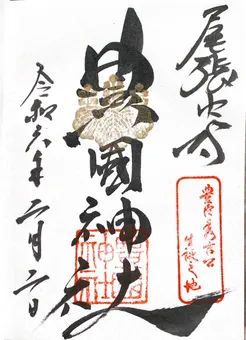 尾張中村
豊國神社
豊臣秀吉公
生誕之地
令和六年二月二日